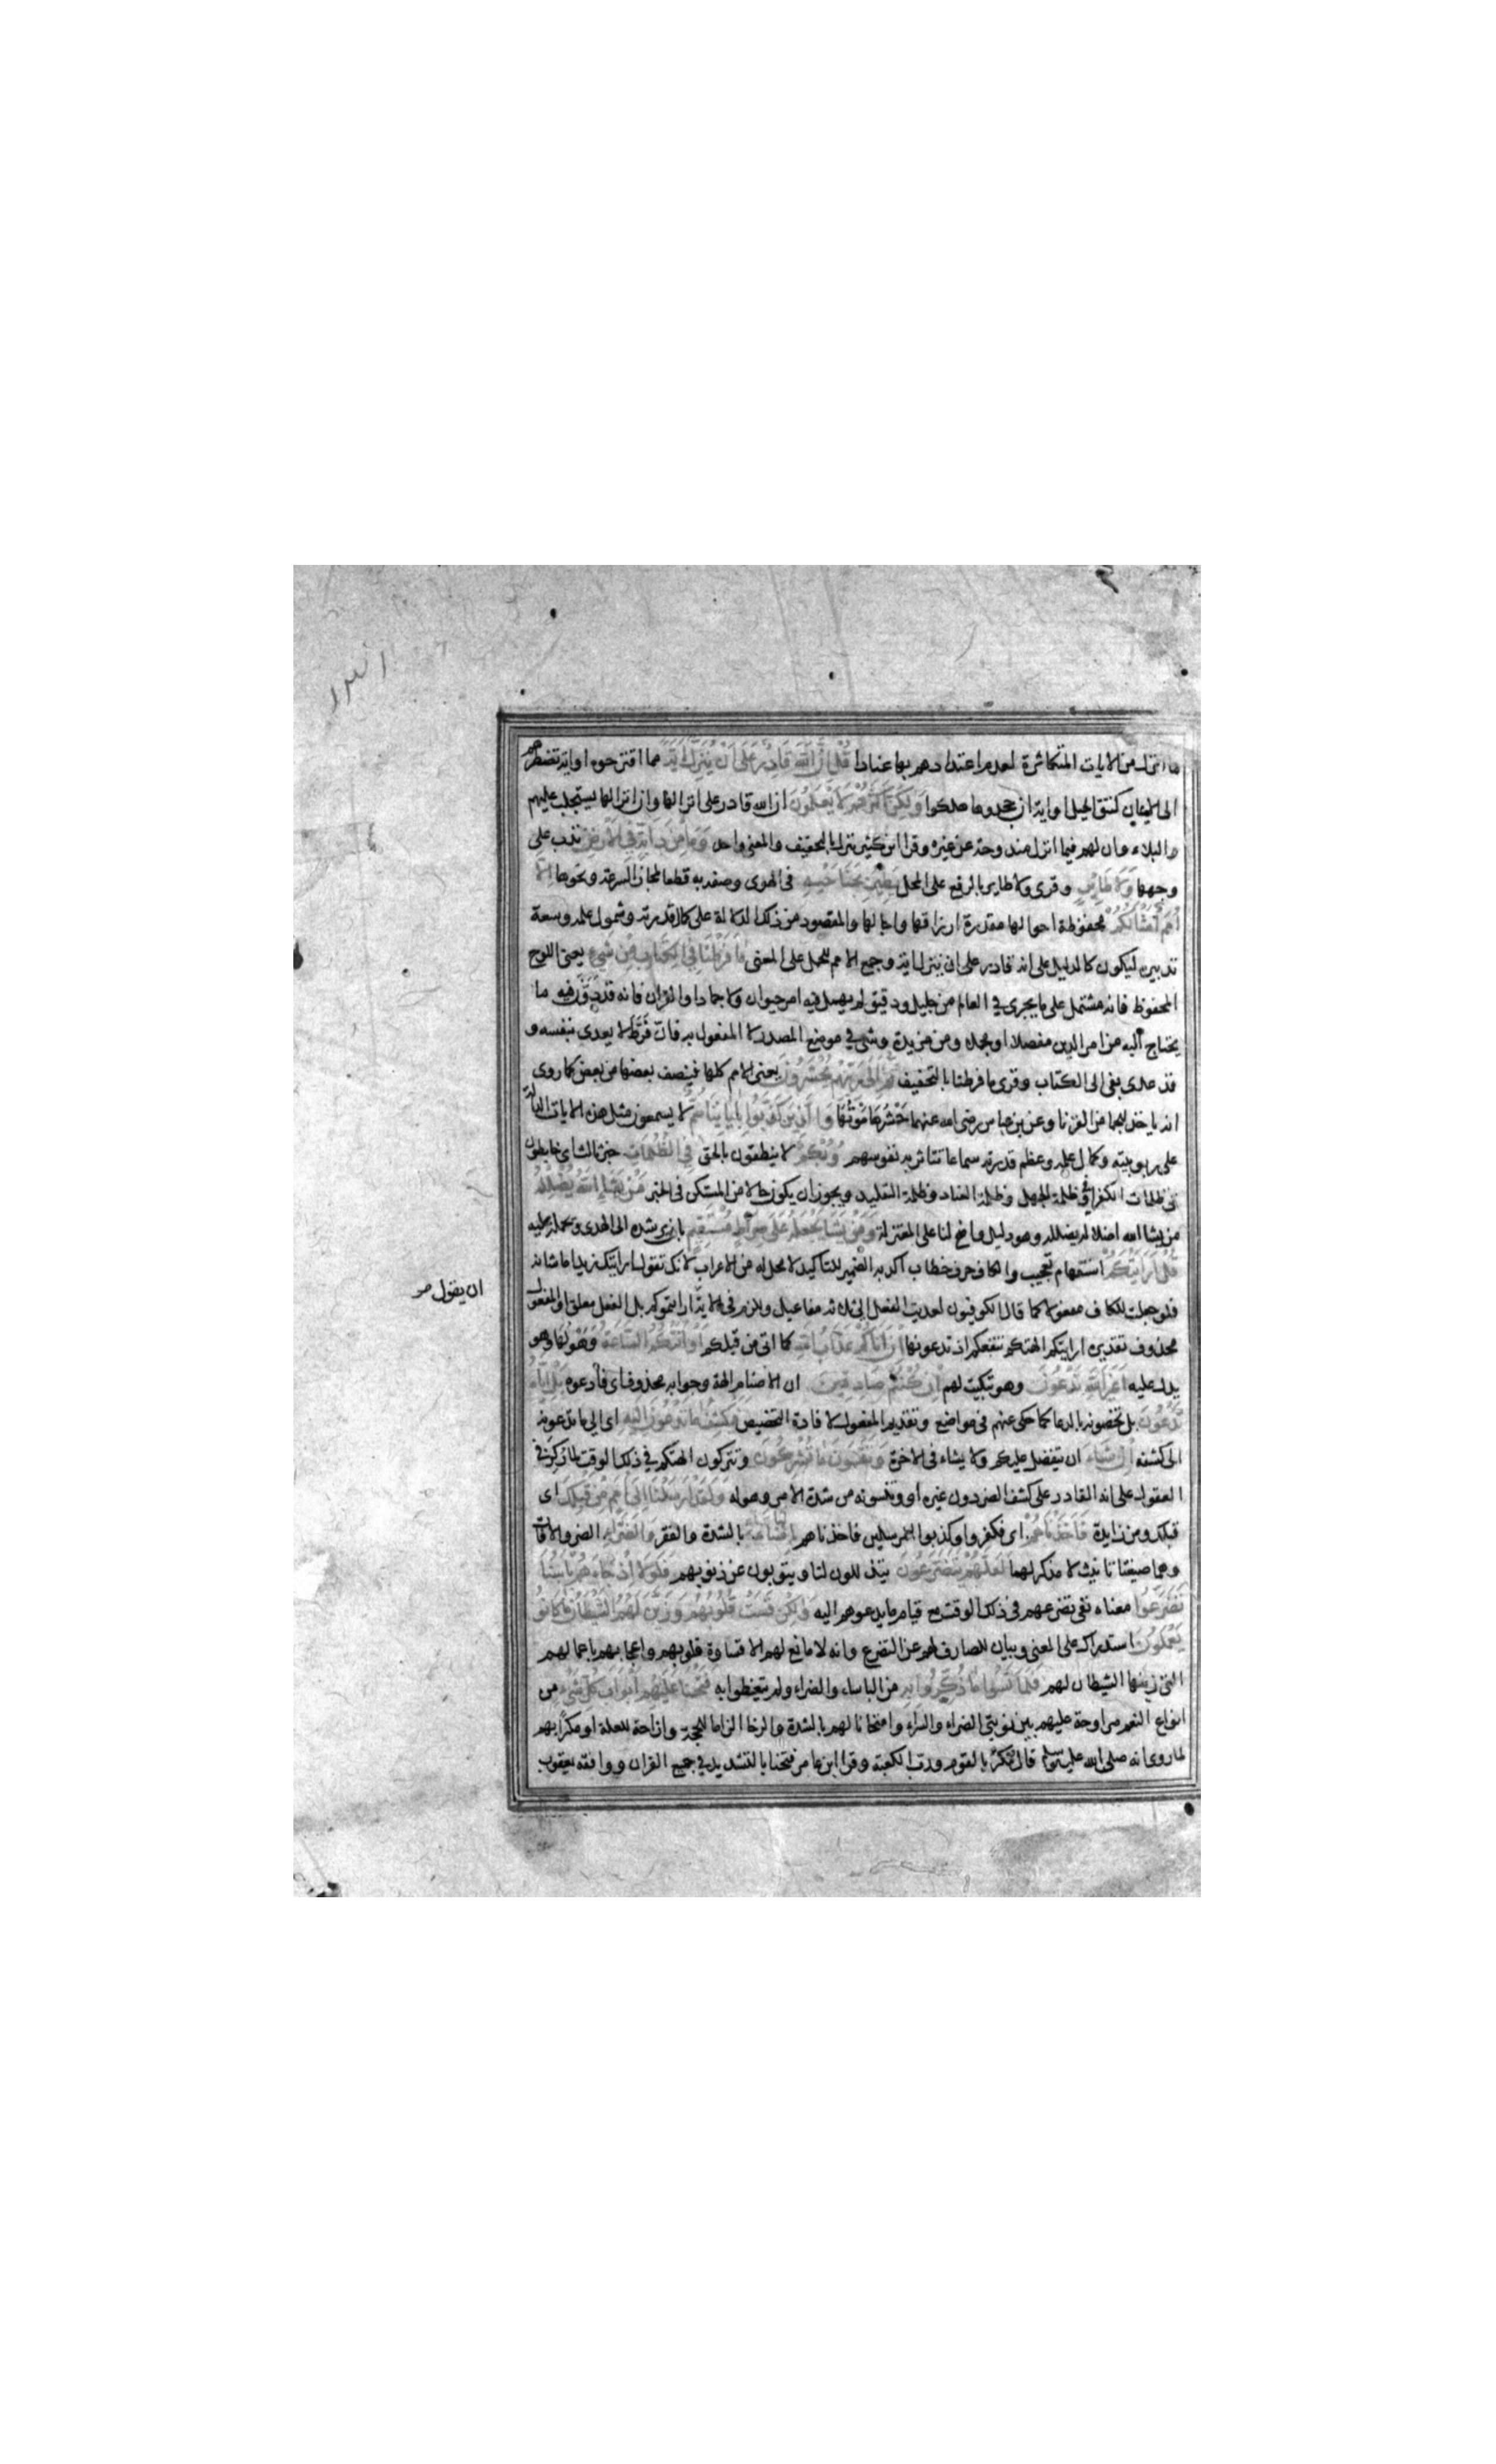 ما انزل من الايات المتكاثرة لعدم اعتدادهم بها عنادا قُلْ اِنَّ اللهَ قَادِرٌ عَلَى اَنْ يُنَزِّلَ اٰيَةً مما اقترحوه او اية تضطرهم
الى الايمان كنتق الجبل او اية ان جحدوها هلكوا وَلٰكِنَّ اَكْثَرَهُمْ لَا يَعْلَمُونَ ان الله قادر على انزالها وان انزالها يستجلب عليهم
البلاء وان لهم فيما انزل مندوحة عن غيره وقرا ابن كثير ينزل بالتخفيف والمعنى واحد وَمَا مِنْ دَابَّةٍ فِي الْاَرْضِ تدب على
وجهها وَلَا طَائِرٍ وقرى ولا طاير بالرفع على المحل يَطِيرُ بِجَنَاحَيْهِ في الهوى وصفه به قطعا لمجاز السرعة ونحوها اِلَّا
اُمَمٌ اَمْثَالُكُمْ محفوظة احوالها مقدرة ارزاقها واجالها والمقصود من ذلك الدلالة على كمال قدرته وشمول علمه وسعة
تدبيره ليكون كالدليل على انه قادر على ان ينزل اية وجمع الامم للحمل على المعنى مَا فَرَّطْنَا فِي الْكِتَابِ مِنْ شَيْءٍ يعنى اللوح
المحفوظ فانه مشتمل على ما يجرى في العالم من جليل ودقيق لم يهمل فيه امر حيوان ولا جماد او القران فانه قد دوّن فيه ما
يحتاج اليه من امر الدين مفصلا او مجملا ومن مزيدة وشى في موضع المصدر لا المفعول به فان فَرَّطَ لا يعدى بنفسه و
قد عدى بفى الى الكتاب وقرى ما فرطنا بالتخفيف ثُمَّ اِلٰى رَبِّهِمْ يُحْشَرُونَ يعنى الامم كلها فينصف بعضها من بعض كما روى
انه ياخذ للجما من القرنا وعن بن عباس رضى الله عنهما حَشْرُهَا مَوْتُهَا وَالَّذِينَ كَذَّبُوا بِاٰيَاتِنَا صُمٌّ لا يسمعون مثل هذه الايات الدالة
على ربوبيته وكمال علمه وعظم قدرته سماعا تتاثر به نفوسهم وَبُكْمٌ لا ينطقون بالحق فِي الظُّلُمَاتِ خبر ثالث اى خابطون
في ظلمات الكفر او في ظلمة الجهل وظلمة العناد وظلمة التقليد ويجوز ان يكون حالا من المستكن في الخبر مَنْ يَشَاِ اللهُ يُضْلِلْهُ
من يشا الله اضلاله يضلله وهو دليل واضح لنا على المعتزلة وَمَنْ يَشَاْ يَجْعَلْهُ عَلٰى صِرَاطٍ مُسْتَقِيمٍ بان يرشده الى الهدى ويحمله عليه
قُلْ اَرَاَيْتَكُمْ استفهام تعجيب والكاف حرف خطاب اكد به الضمير للتاكيد لا محل له من الاعراب لانك تقول ارايتك زيدا ما شانه
فلو جعلت للكاف مفعولا كما قال الكوفيون لعديت الفعل الى ثلاثه مفاعيل ولزم في الاية ارايتموكم بل الفعل معلق او المفعول
محذوف تقديره ارايتكم الهتكم تنفعكم اذ تدعونها اِنْ اَتَاكُمْ عَذَابُ اللهِ كما اتى من قبلكم اَوْ اَتَتْكُمُ السَّاعَةُ وَهَوْلُهَا وهو
يدل عليه اَغَيْرَ اللهِ تَدْعُونَ وهو تبكيت لهم اِنْ كُنْتُمْ صَادِقِينَ ان الاصنام الهة وجوابه محذوف اى فادعوه بَلْ اِيَّاهُ
تَدْعُونَ بل تخصونه بالدعا كما حكى عنهم في مواضع وتقديم المفعول لافادة التخصيص فَيَكْشِفُ مَا تَدْعُونَ اِلَيْهِ اى الى ما تدعونه
الى كشفه اِنْ شَاءَ ان يتفضل عليكم ولا يشاء في الاخرة وَتَنْسَوْنَ مَا تُشْرِكُونَ وتتركون الهتكم في ذلك الوقت لما ركز في
العقول على انه القادر على كشف الضر دون غيره او وتنسونه من شدة الامر وهوله وَلَقَدْ اَرْسَلْنَا اِلٰى اُمَمٍ مِنْ قَبْلِكَ اى
قبلك ومن زايدة فَاَخَذْنَاهُمْ اى فكفروا وكذبوا المرسلين فاخذناهم بِالْبَاْسَاءِ بالشدة والفقر وَالضَّرَّاءِ الضر والافات
وهما صيغتا تانيث لا مذكر لهما لَعَلَّهُمْ يَتَضَرَّعُونَ يتذللون لنا ويتوبون عن ذنوبهم فَلَوْلَا اِذْ جَاءَهُمْ بَاْسُنَا
تَضَرَّعُوا معناه نفى تضرعهم في ذلك الوقت مع قيام ما يدعوهم اليه وَلٰكِنْ قَسَتْ قُلُوبُهُمْ وَزَيَّنَ لَهُمُ الشَّيْطَانُ مَا كَانُوا
يَعْمَلُونَ استدراك على المعنى وبيان للصارف لهم عن التضرع وانه لا مانع لهم الا قساوة قلوبهم واعجابهم باعمالهم
التى زينها الشيطان لهم فَلَمَّا نَسُوا مَا ذُكِّرُوا بِهِ من الباساء والضراء ولم يتعظوا به فَتَحْنَا عَلَيْهِمْ اَبْوَابَ كُلِّ شَيْءٍ من
انواع النعم مراوحة عليهم بين نوبتي الضراء والسراء وامتحانا لهم بالشدة والرخا الزاما للحجة وازاحة للعلة او مكرا بهم
لما روى انه صلى الله عليه وسلم قال مُكِرَ بالقوم ورب الكعبة وقرا ابن عامر فتحنا بالتشديد في جميع القران ووافقه يعقوب
ان يقول مر